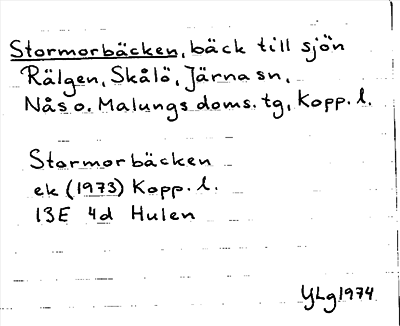 Stormorbäcken, bäck till sjön
Rälgen, Skålö, Järna sn,
Nås o. Malungs doms. tg, Kopp. l.
Stormorbäcken
ek (1973) Kopp. l.
13E 4d Hulen
YLg 1974